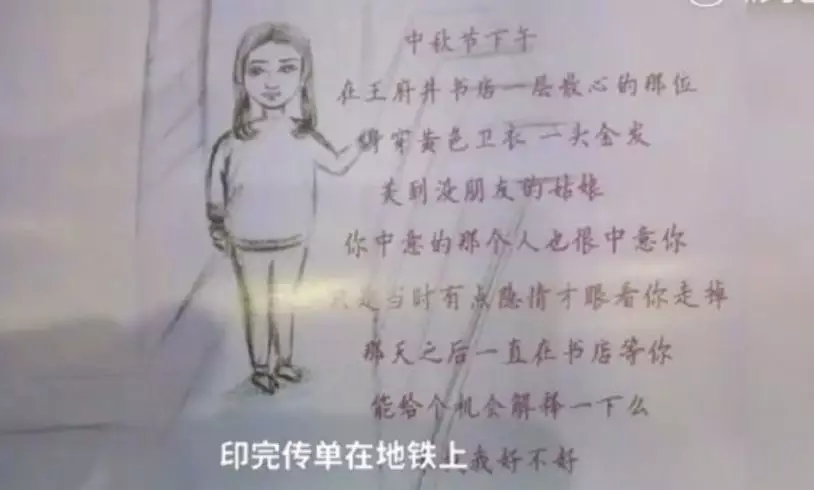 中秋节下午
在王府井书店一层散心的那位
穿黄色卫衣 一头金发
美到没朋友的姑娘
你中意的那个人也很中意你
只是当时有点隐情才眼看你走掉
那天之后一直在书店等你
能给个机会解释一下么
我好不好
印完传单在地铁上